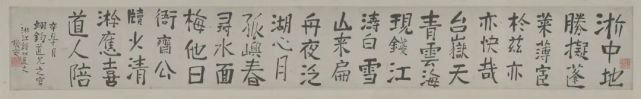 浙中地
勝擬蓬
萊薄宦
於茲亦
亦快哉
台嶽天
青雲海
現錢江
濤白雪
山來扁
舟夜泛
湖心月
孤嶼春
尋水面
梅他日
衙齋公
牘少清
應喜
道人陪
道兄之官
浙江